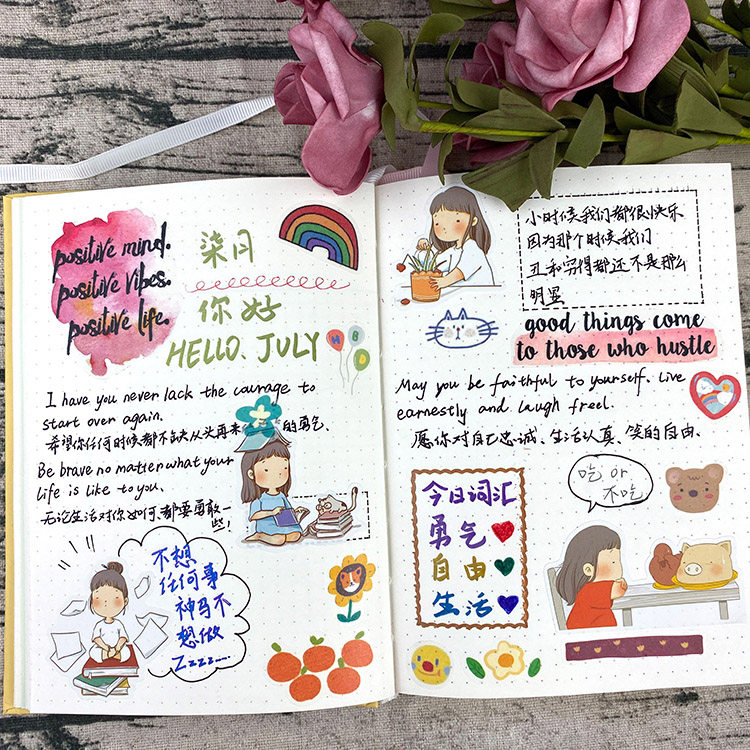 positive mind.
positive vibes.
positive life.
柒月
你好
HELLO. JULY
H B
I have you never lack the courage to
start over again.
希望你任何时候都不缺从头再来的勇气.
Be brave no matter what your
life is like to you.
无论生活对你如何都要勇敢一
些!
不想
任何事
神马不
想做
Zzzz....
小时候我们都很快乐
因为那个时候我们
丑和穷得都还不是那么
明显
good things come
to those who hustle
May you be faithful to yourself. Live
earnestly and laugh freel.
愿你对自己忠诚、生活认真、笑的自由.
今日词汇
勇气
自由
生活
吃 or
不吃